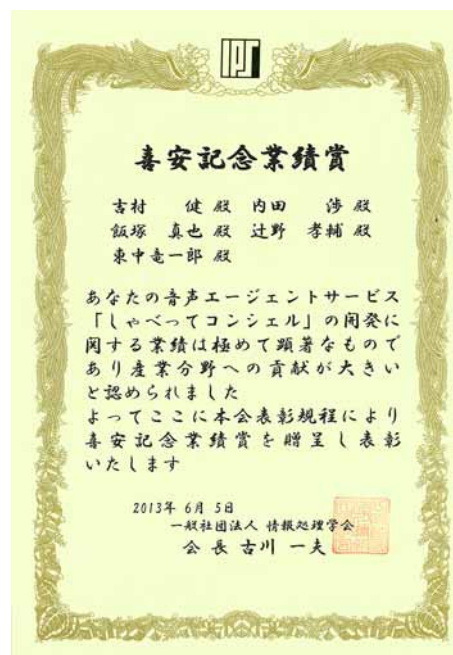 IPSJ
喜安記念業績賞
吉村 健 殿 内田 渉 殿
飯塚 真也 殿 辻野 孝輔 殿
東中竜一郎 殿
あなたの音声エージェントサービス
「しゃべってコンシェル」の開発に
関する業績は極めて顕著なもので
あり産業分野への貢献が大きい
と認められました
よってここに本会表彰規程により
喜安記念業績賞を贈呈し表彰
いたします
2013年 6月 5日
一般社団法人 情報処理学会
会 長 古川 一夫